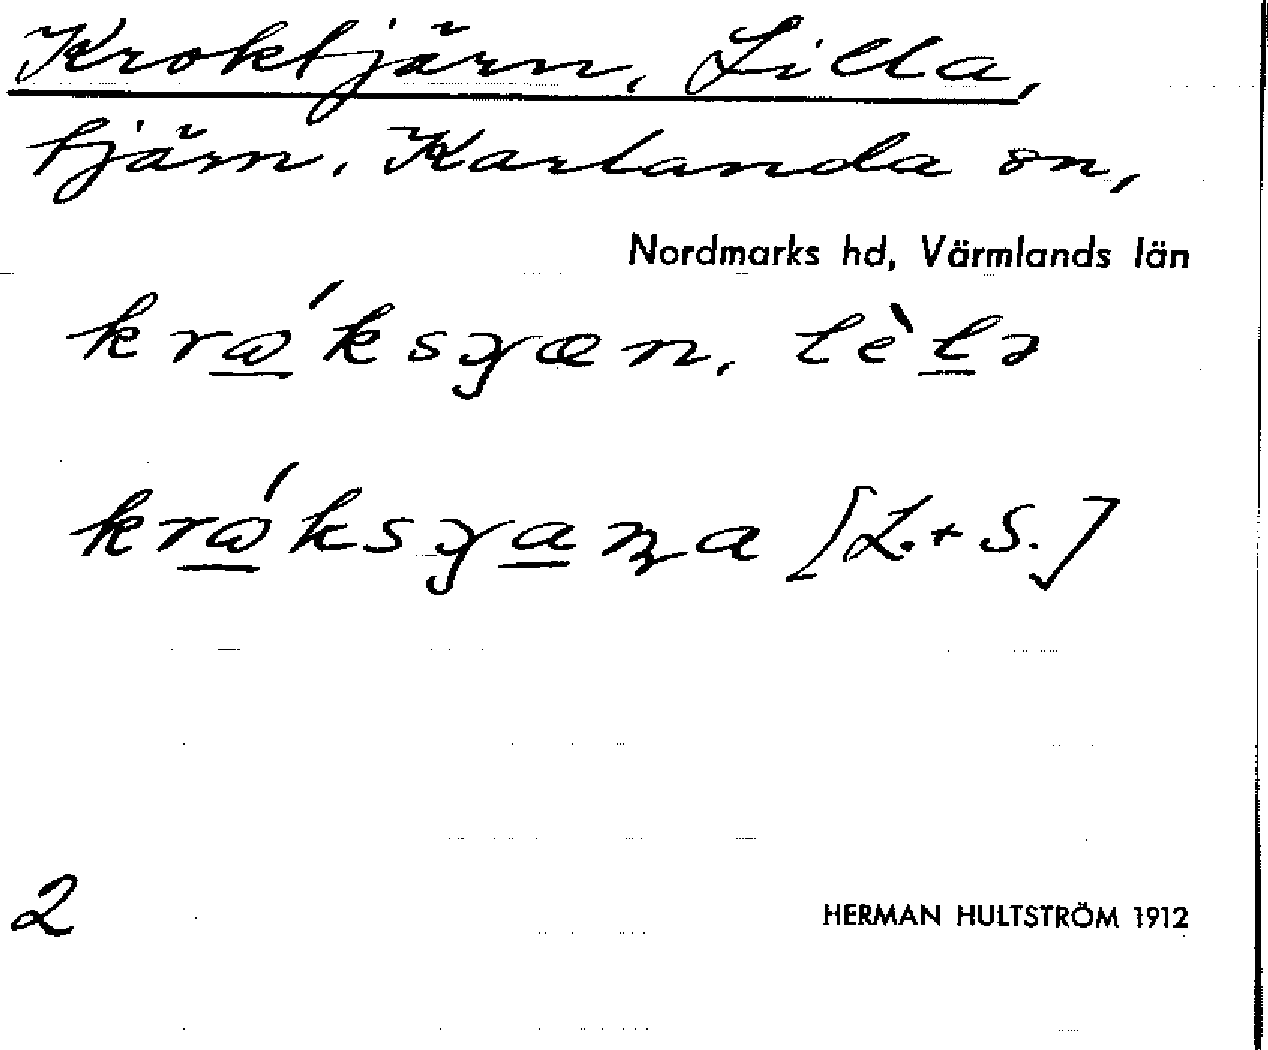 Kroktjärn, Lilla,
tjärn, Karlanda sn,
Nordmarks hd, Värmlands län
[L.+S.]
2
HERMAN HULTSTRÖM 1912